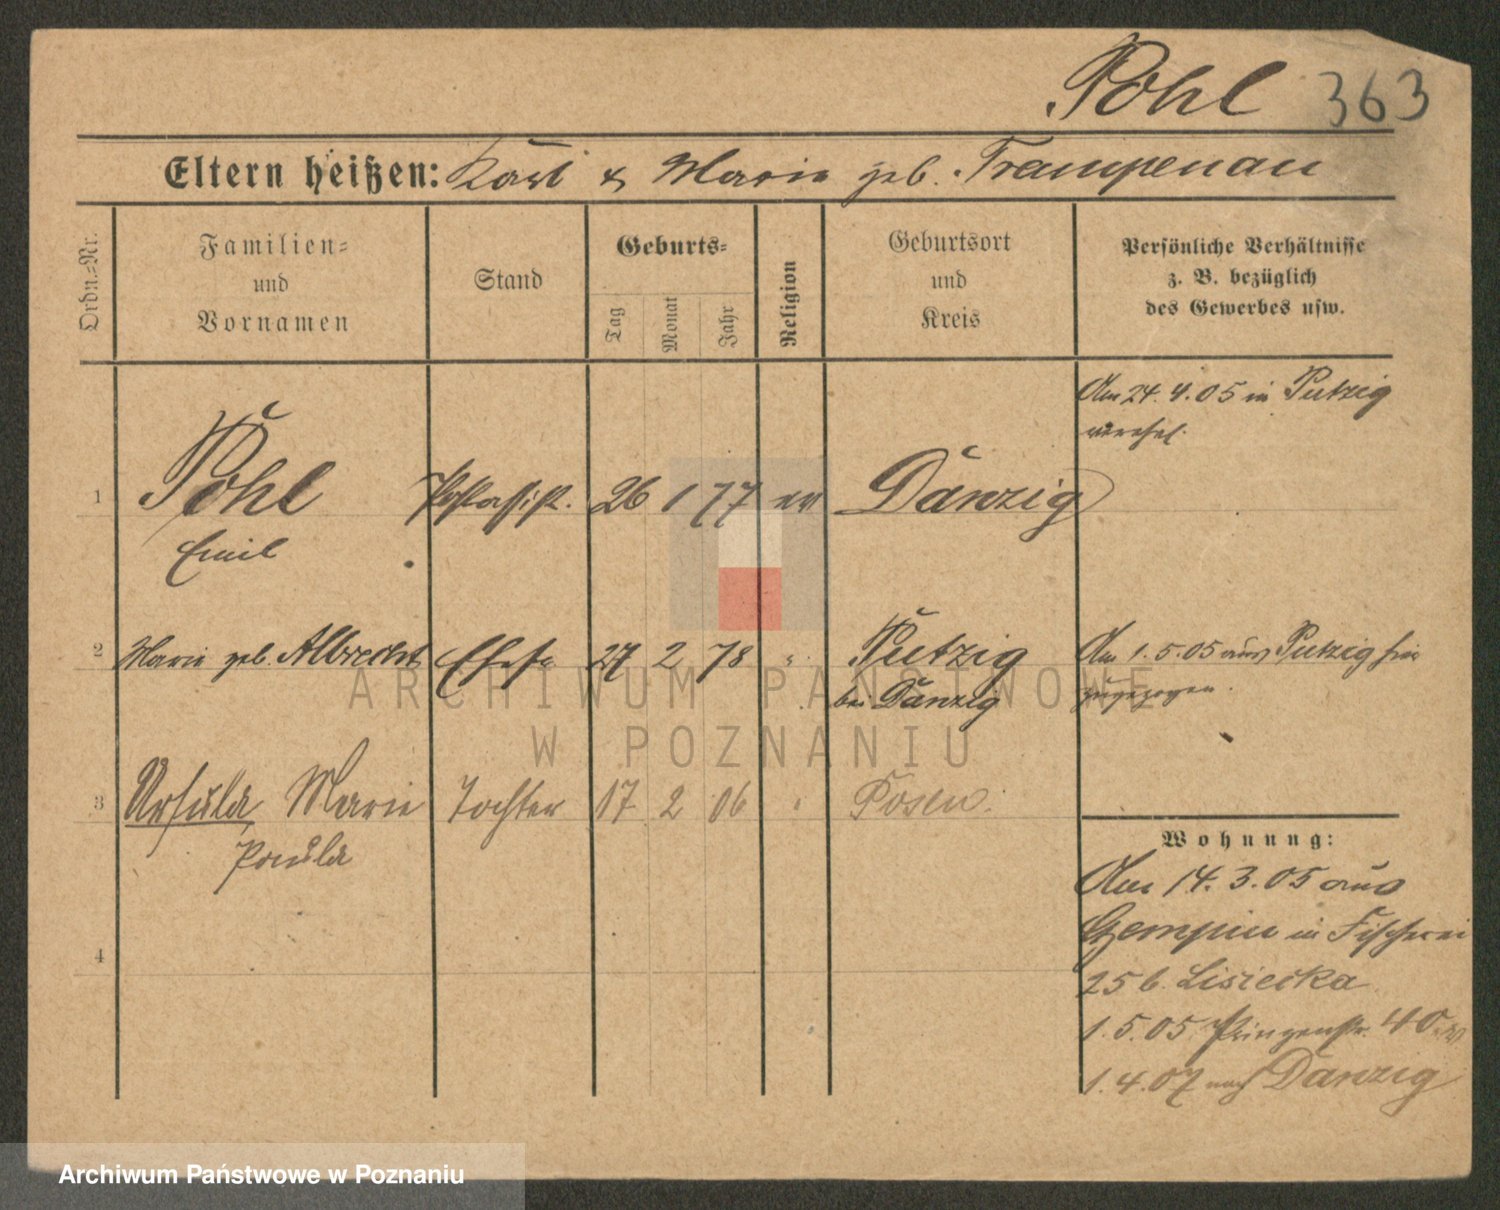 Pohl 363
Eltern heißen: Karl & Marie geb. Trampenau
Ordn.-Nr.
Familien-
und
Vornamen
Stand
Geburts-
Tag
Monat
Jahr
Religion
Geburtsort
und
Kreis
Persönliche Verhältnisse
z. B. bezüglich
des Gewerbes usw.
Am 24. 4. 05 in Putzig
verehel.
1 Pohl Postassist. 26 1 77 ev Danzig
Emil
2 Marie geb. Albrecht Ehefr 27 2 78 " Putzig
bei Danzig
Am 1. 5. 05 aus Putzig hier
zugezogen.
3 Ursula Marie Tochter 17 2 06 " Posen.
Paula
4
Wohnung:
Am 14. 3. 05 aus
Czempin in Fischerei
25 b. Lisiecka
1. 5. 05 Prinzenstr. 40
1. 4. 07 nach Danzig
ARCHIWUM PAŃSTWOWE
W POZNANIU
Archiwum Państwowe w Poznaniu